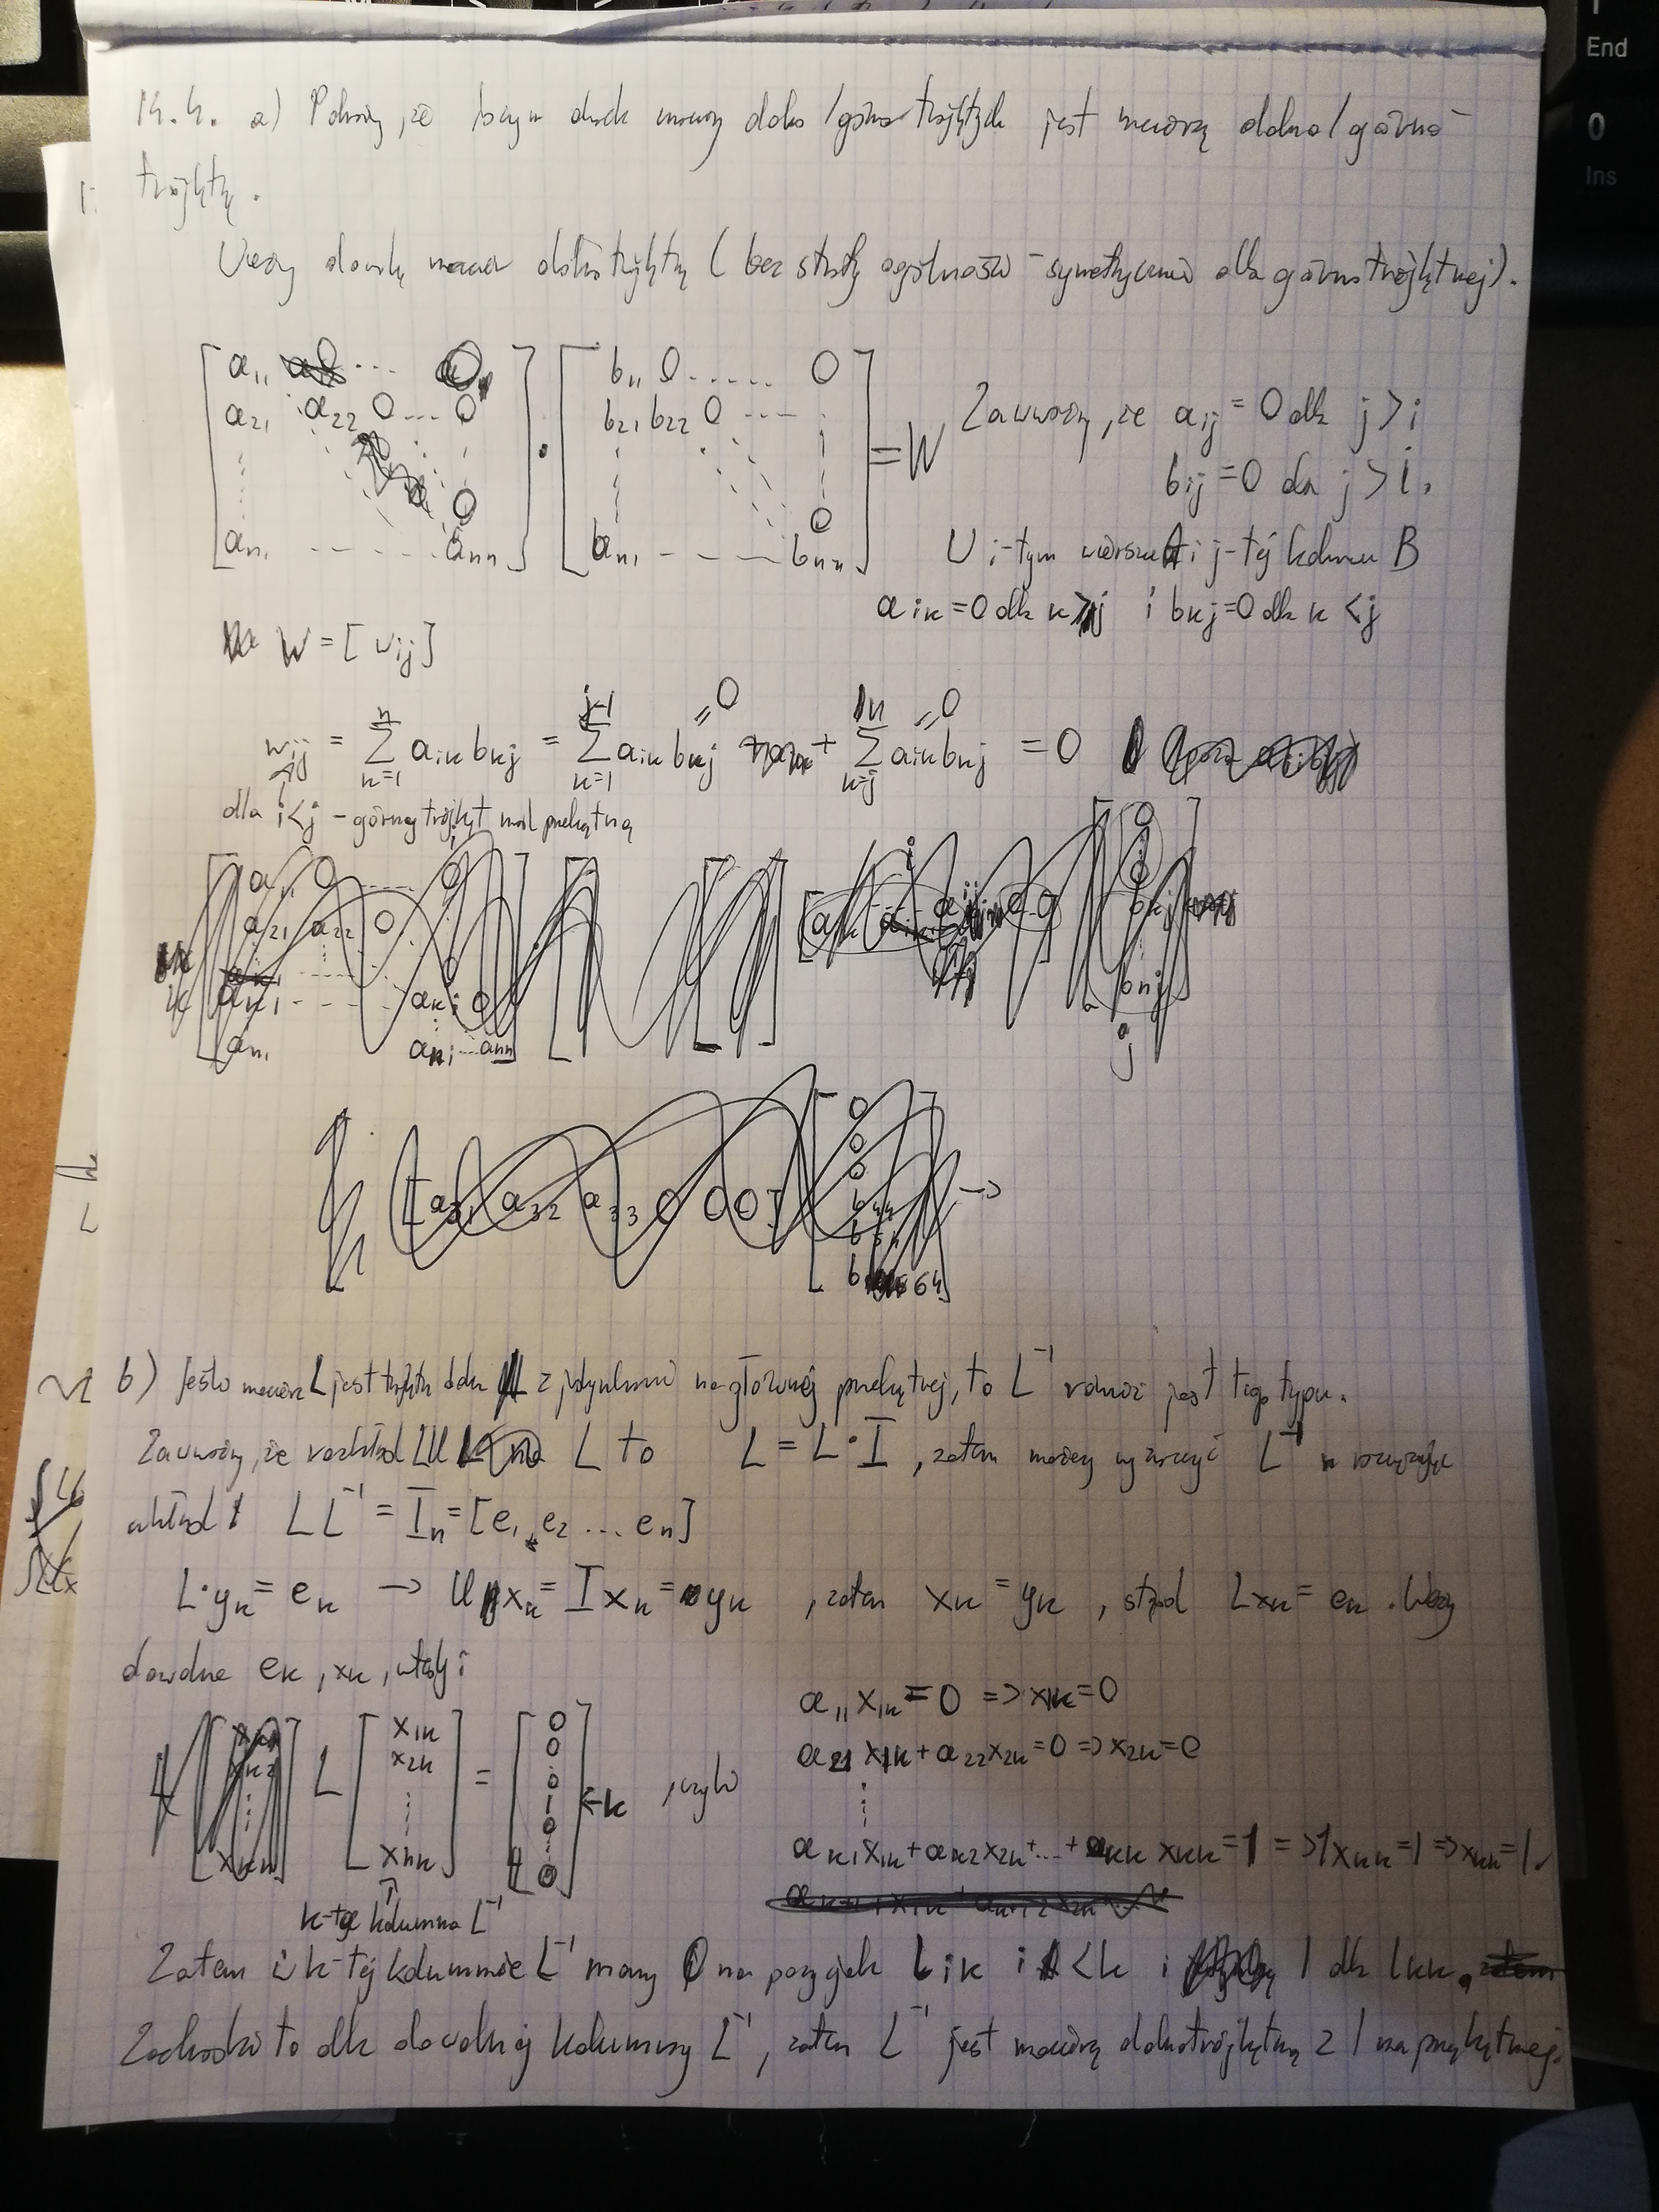 14.4. a) Pokaży, że iloczyn dwóch macierzy dolno/górnotrójkątnych jest macierzą dolno/górno-
trójkątną.
dolnotrójkątną (bez straty ogólności - symetrycznie dla górnotrójkątnej).
[a11 0 ... 0] [b11 0 ...... 0] Zauważmy, że aij = 0 dla j > i
a21 a22 0 ... 0 · b21 b22 0 --- = W bij = 0 dla j > i.
0 0
an1 ------ ann bn1 - - - bnn U i-tym wierszu A i j-tej kolumnie B
aik = 0 dla k > j i bkj = 0 dla k < j
W = [wij]
wij = n∑k=1 aik bkj = j-1∑k=1 aik bkj + n∑k=j aik bkj = 0
=0 =0
dla i<j - górny trójkąt nad przekątną
b) Jeśli macierz L jest trójkątna dolna z jedynkami na głównej przekątnej, to L⁻¹ również jest tego typu.
Zauważmy, że rozkład LU L to L = L·I, zatem możemy wyznaczyć L⁻¹ rozwiązując
układ: LL⁻¹ = In = [e1, e2 ... en]
L·yk = ek → U xk = I xk = yk, zatem xk = yk, stąd Lxk = ek. Weźmy
dowolne ek, xk, wtedy:
L [x1k x2k ⋮ xnk] = [0 0 ⋮ 0 1 0 ⋮ 0] ← k, czyli
a11 x1k = 0 => x1k = 0
a21 x1k + a22 x2k = 0 => x2k = 0
⋮
ak1 x1k + ak2 x2k + ... + akk xkk = 1 => 1 xkk = 1 => xkk = 1.
k-ta kolumna L⁻¹
Zatem w k-tej kolumnie L⁻¹ mamy 0 na pozycjach lik i < k i 1 dla lkk.
Zachodzi to dla dowolnej kolumny L⁻¹, zatem L⁻¹ jest macierzą dolnotrójkątną z 1 na przekątnej.
End
0
Ins